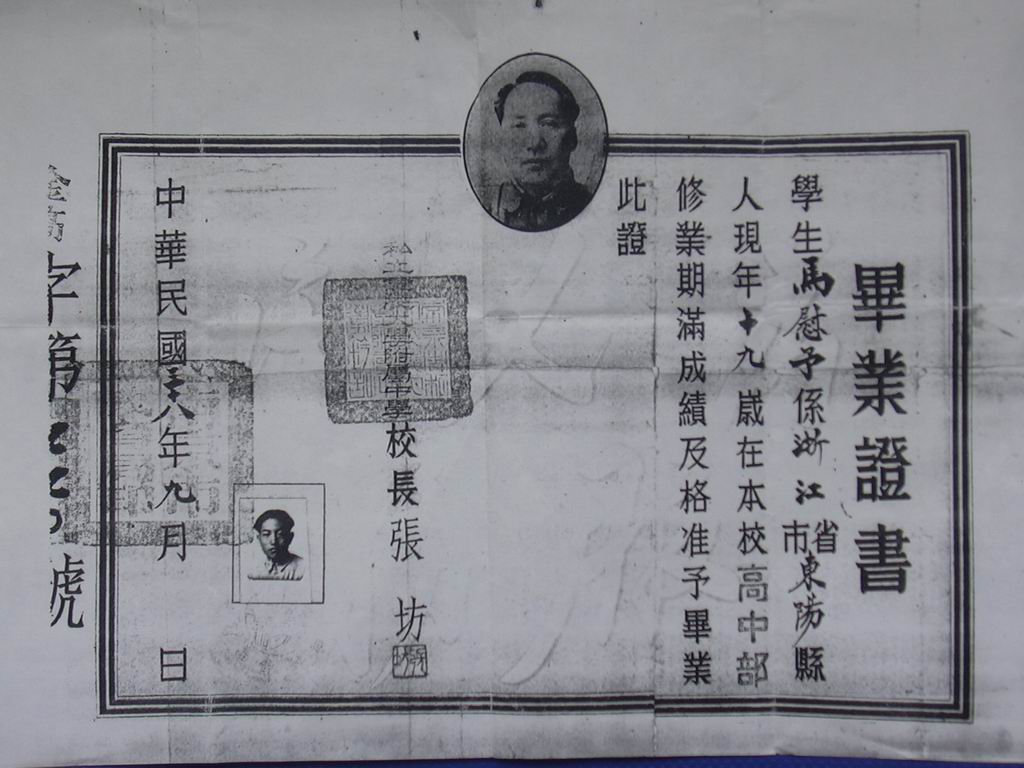 畢業證書
學生馬慰予係浙江省市東陽縣
人現年十九歲在本校高中部
修業期滿成績及格准予畢業
此證
學附屬中學校長張坊
中華民國三十八年九月 日
字第 號